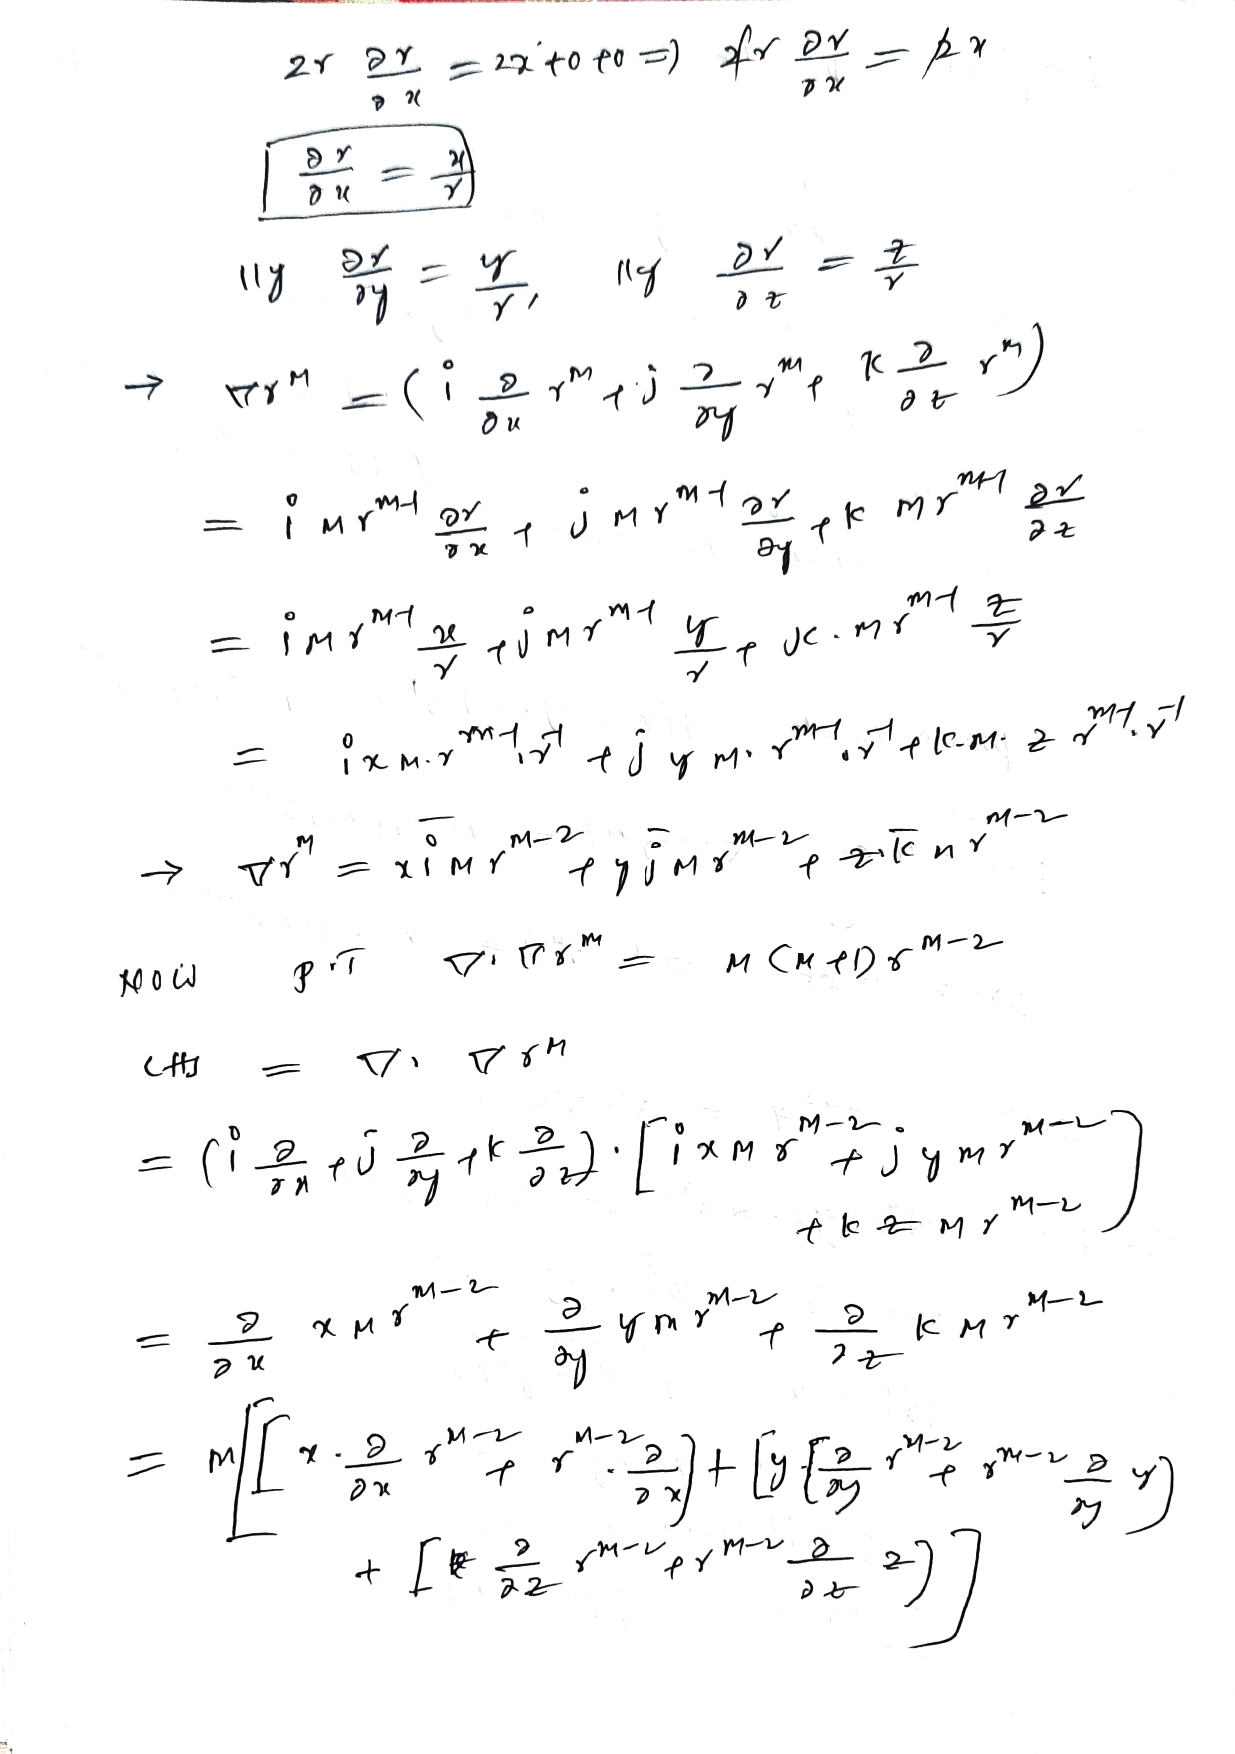 2r ∂r/∂x = 2x + 0 + 0 ⇒ 2r ∂r/∂x = 2x
∂r/∂x = x/r
llly ∂r/∂y = y/r, llly ∂r/∂z = z/r
→ ∇r^m = (i ∂/∂x r^m + j ∂/∂y r^m + k ∂/∂z r^m)
= i m r^(m-1) ∂r/∂x + j m r^(m-1) ∂r/∂y + k m r^(m-1) ∂r/∂z
= i m r^(m-1) x/r + j m r^(m-1) y/r + k . m r^(m-1) z/r
= i x m . r^(m-1) . r^-1 + j y m . r^(m-1) . r^-1 + k . m . z r^(m-1) . r^-1
→ ∇r^m = x i̅ m r^(m-2) + y j̅ m r^(m-2) + z . k̅ n r^(m-2)
Now P.T ∇ . ∇r^m = m (m+1) r^(m-2)
LHS = ∇ . ∇ r^m
= (i ∂/∂x + j ∂/∂y + k ∂/∂z) . [i x m r^(m-2) + j y m r^(m-2)
+ k z m r^(m-2)]
= ∂/∂x x m r^(m-2) + ∂/∂y y m r^(m-2) + ∂/∂z k m r^(m-2)
= m [[x . ∂/∂x r^(m-2) + r^(m-2) . ∂/∂x] + [y [∂/∂y r^(m-2) + r^(m-2) ∂/∂y y]
+ [ ∂/∂z r^(m-2) + r^(m-2) ∂/∂z z]]